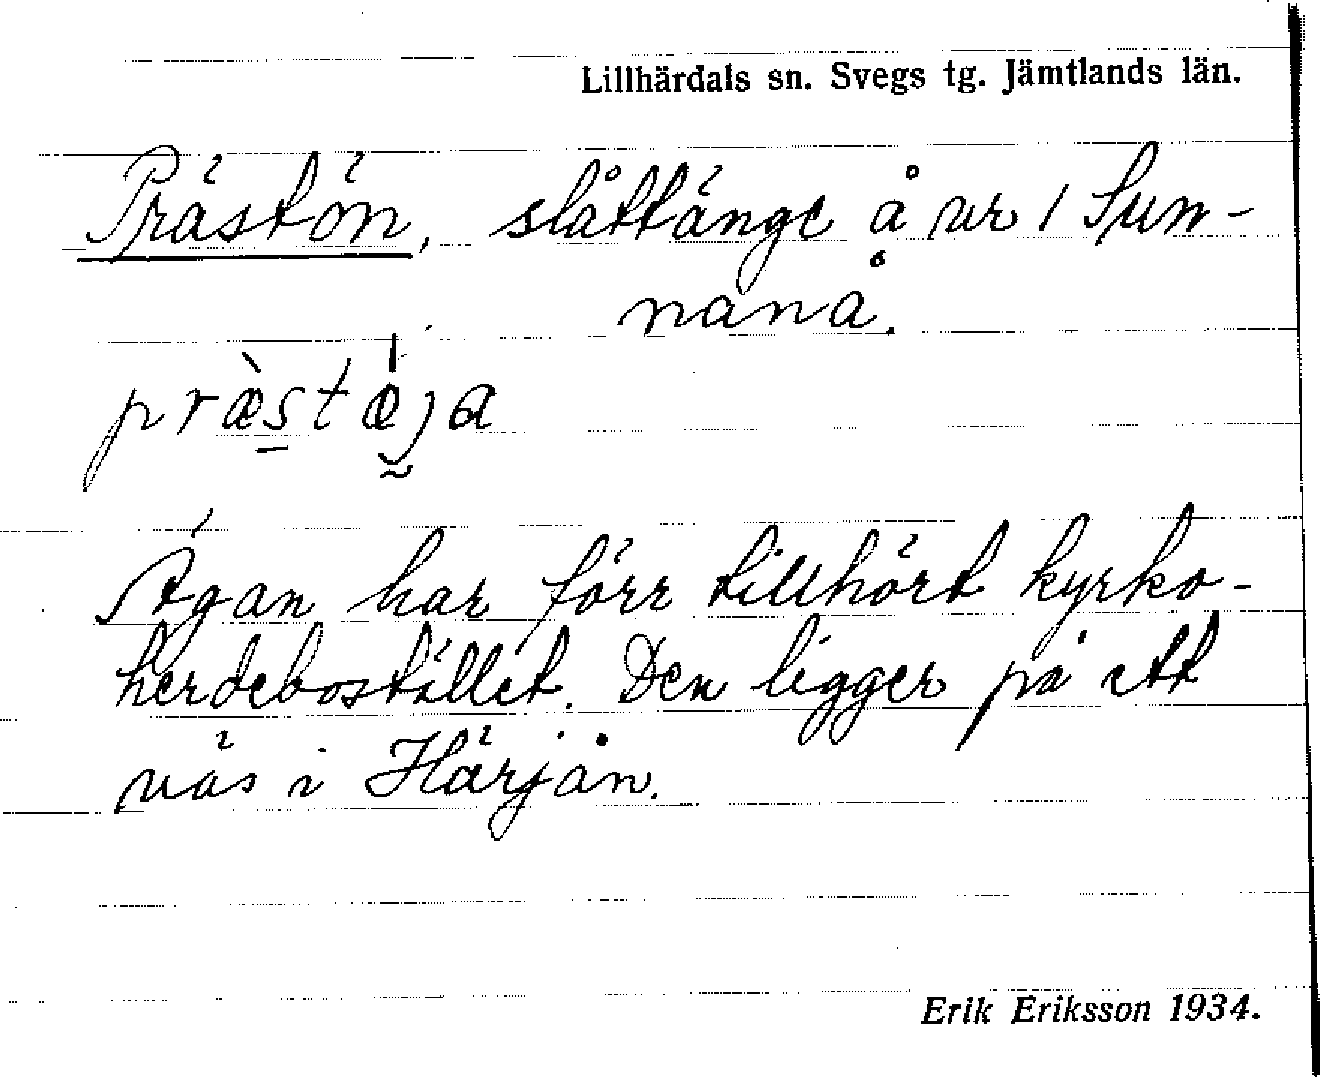 Lillhärdals sn. Svegs tg. Jämtlands län.
Prästön, slåttänge å nr 1 Sun-
nanå.
præ̀stǽja
Ägan har förr tillhört kyrko-
herdebostället. Den ligger på ett
näs i Härjån.
Erik Eriksson 1934.